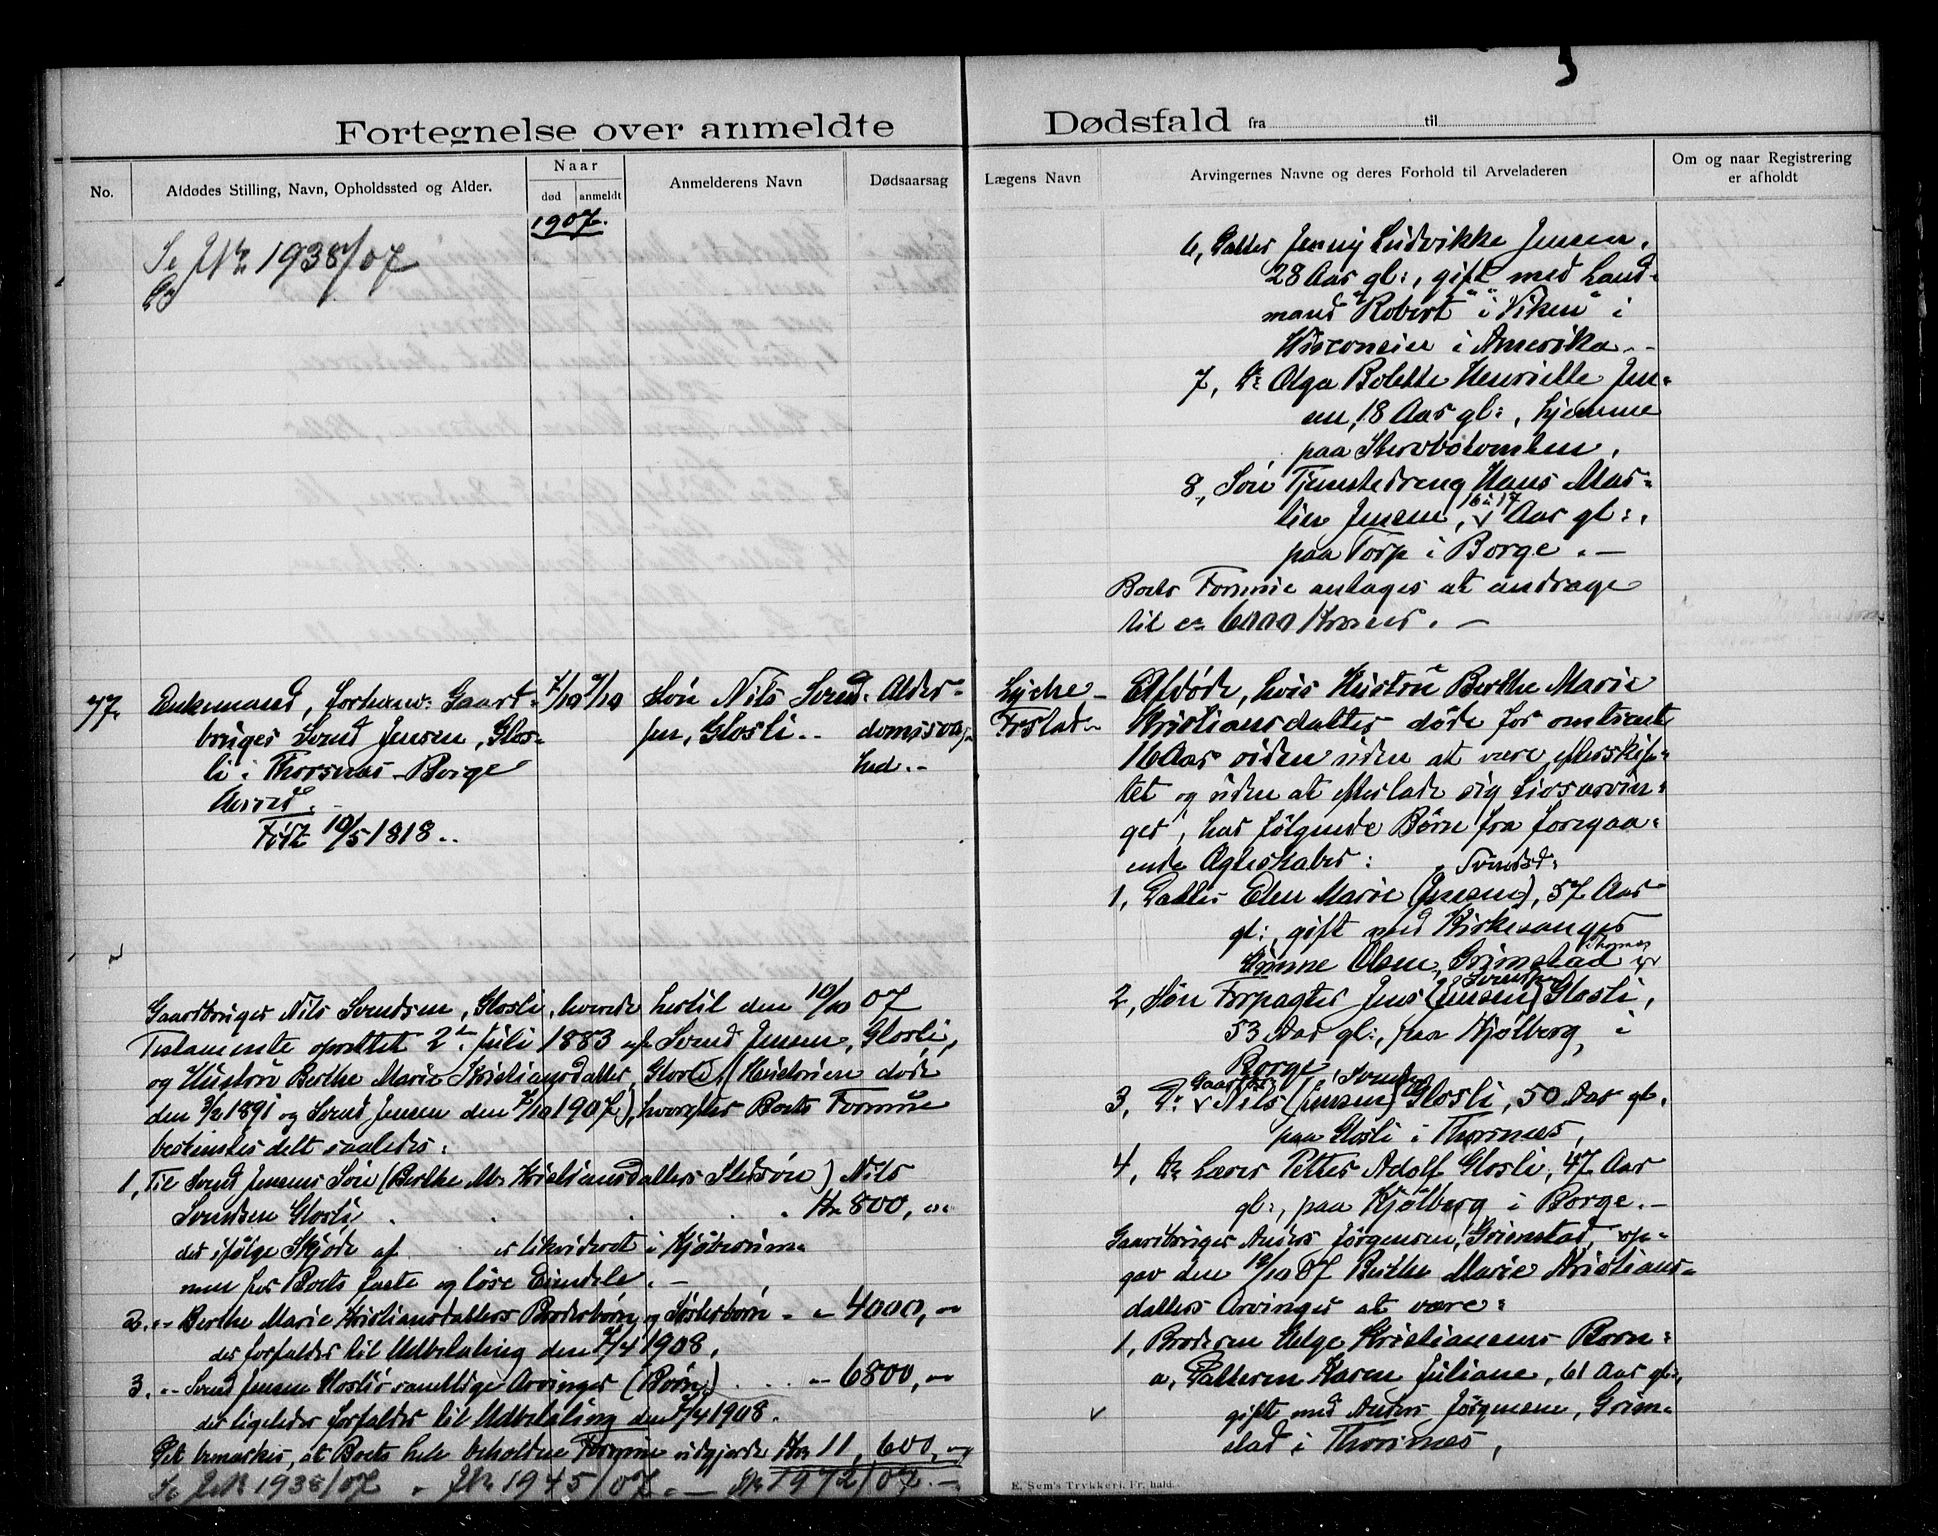 Fortegnelse over anmeldte
No.
Afdødes Stilling, Navn, Opholdssted og Alder.
Naar
død
anmeldt
Anmelderens Navn
Dødsaarsag
1907.
Se JNr 1938/07
77.
Enkemand, forhenv: Gaard-
bruger Svend Jensen, Glos-
li i Thorsnæs Borge
Annex.
Født 10/5 1818..
7/10
9/10
Søn Nils Svend-
sen, Glosli..
Alder-
domssvag-
hed.-
Gaardbruger Nils Svendsen, Glosli, leverede hertil den 10/10 07
Testamente oprettet 2den Juli 1883 af Svend Jensen, Glosli,
og Hustru Berthe Marie Kristiansdatter, Glosli, (Hustruen døde
den 3/2 1891 og Svend Jensen den 7/10 1907), hvorefter Boets Formue
bestemtes delt saaledes:
1, Til Svend Jensens Søn (Berthe M. Kristiansdatters Stedsøn) Nils
Svendsen Glosli, . . . . Kr 800, "
der ifølge Skjøde af er likvideret i Kjøbesum-
men for Boets faste og løse Eiendele. -
2. " Berthe Marie Kristiansdatters Broderbørn og Søsterbørn - " 4000, "
der forfalder til Udbetaling den 7/4 1908.
3. " Svend Jensen Gloslis samtlige Arvinger (Børn) . . . " 6800, "
der ligeledes forfalder til Udbetaling den 7/4 1908.
Det bemærkes, at Boets hele beholdne Formue udgjorde Kr 11,600, "
Se JNr 1938/07 " JNr 1945/07. - JNr 1972/07.-
Dødsfald fra til
Lægens Navn
Arvingernes Navne og deres Forhold til Arveladeren
Om og naar Registrering
er afholdt
6, Datter Jenny Ludvikke Jensen,
28 Aar gl:, gift med Land-
mand "Robert" i "Viken" i
Wisconsin i Amerika.-
7, Do Olga Bolette Henriette Jen-
sen, 18 Aar gl:, hjemme
paa Skrovbotomten.
8, Søn Tjenstedreng Hans Mar-
tin Jensen, 16 à 17 Aar gl:,
paa Torp i Borge.-
Boets Formue antages at andrage
til ca 6000 Kroner.-
Lyche
Frstad-
Afdøde, hvis Hustru Berthe Marie
Kristiansdatter døde for omtrent
16 Aar siden uden at være efterskif-
tet og uden at efterlade sig Livsarvin-
ger, har følgende Børn fra foregaa-
ende Ægteskaber:
Svendsd:
1, Datter Elen Marie (Jensen), 57 Aar
gl:, gift med Kirkesanger
Olsen, Grimstad i Thorsnes
Svendsen
2, Søn Forpagter Jens (Jensen) Glosli,
53 Aar gl:, paa Kjølberg, i
Borge
3, Do Nils (Jensen) Svendsen Glosli, 50 Aar gl.
paa Glosli i Thorsnes,
4, Do Lærer Petter Adolf Glosli, 47 Aar
gl:, paa Kjølberg i Borge.-
Gaardbruger Anders Jørgensen, Grimstad, op-
gav den 10/10 07 Berthe Marie Kristians-
datters Arvinger at være:
1, Broderen Helge Kristiansens Børn:
a, Datteren Karen Juliane, 61 Aar gl:,
gift med Anders Jørgensen, Grim-
stad i Thorsnes,
E. Sem's Trykkeri, Fr.hald.